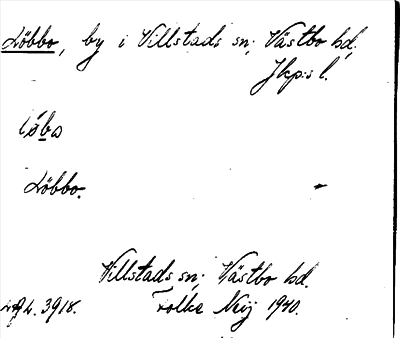 Löbbo, by i Villstads sn; Västbo hd,
Jkp:s l.
Löbbo.
Villstads sn; Västbo hd.
3918. Folke Neij 1940.